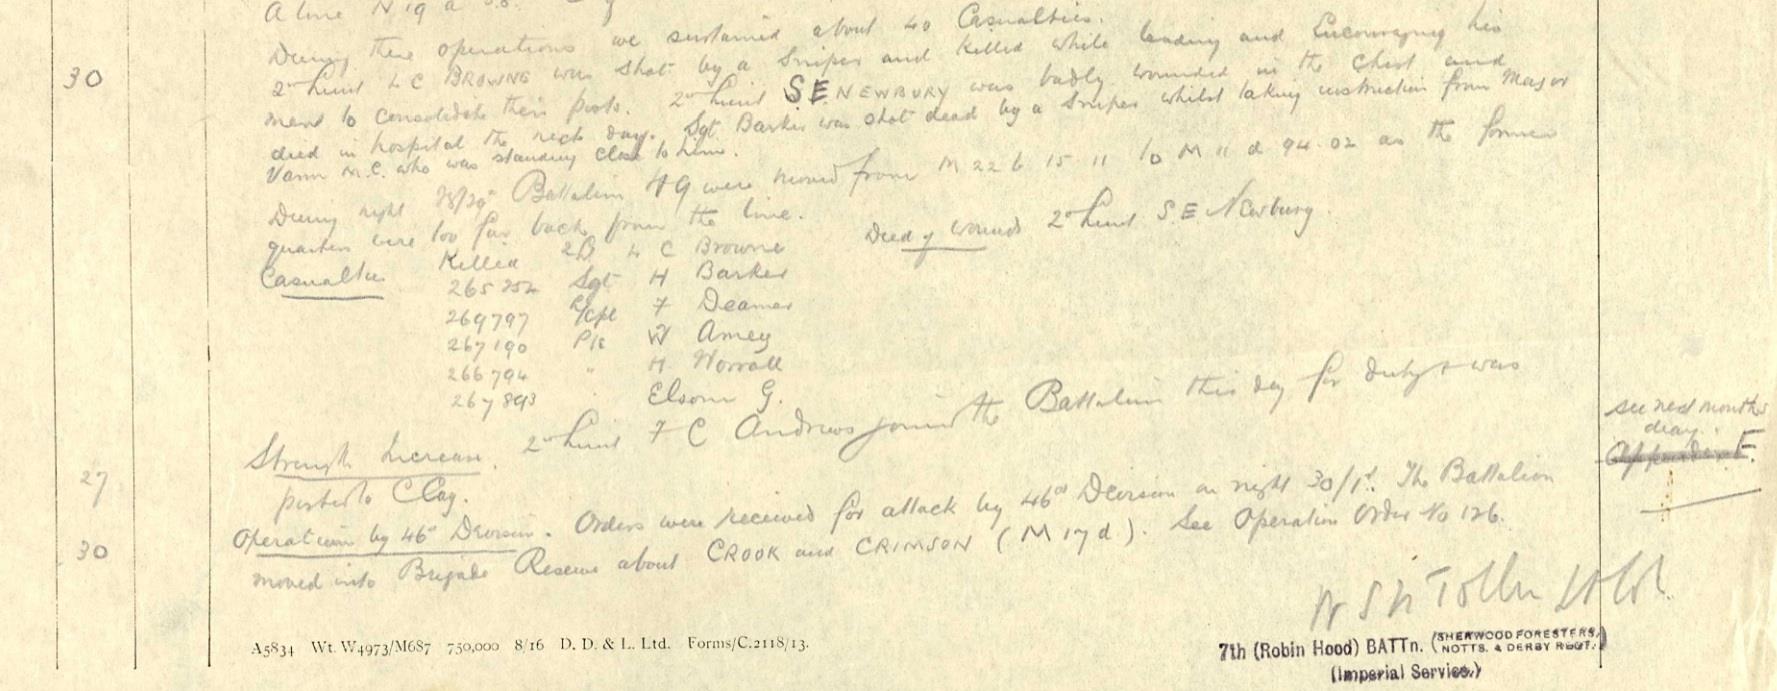 During these operations we sustained about 40 Casualties.
30
2nd Lieut L C BROWNE was shot by a Sniper and killed while leading and Encouraging his
men to consolidate their posts. 2nd Lieut S E NEWBURY was badly wounded in the chest and
died in hospital the next day. Sgt Barker was shot dead by a Sniper whilst taking instruction from Major
Vann M.C. who was standing close to him.
During night 28/29th Battalion HQ were moved from M 22 b 15.11 to M 11 d 94.02 as the former
quarters were too far back from the line.
Casualties Killed 2Lt L C Browne Died of wounds 2nd Lieut S E Newbury.
265252 Sgt H Barker
269797 L/Cpl F Deamer
267190 Pte W Amey
266794 " H Worrall
267893 " Elsom G.
27
Strength Increase. 2nd Lieut F C Andrews joined the Battalion this day for duty & was
posted to C Coy.
see next months
diary.
Appendix E.
30
Operation by 46th Division. Orders were received for attack by 46th Division on night 30/1st. The Battalion
moved into Brigade Reserve about CROOK and CRIMSON (M 17 d). See Operation Order No 126.
A5834 Wt. W4973/M687 750,000 8/16 D. D. & L. Ltd. Forms/C.2118/13.
7th (Robin Hood) BATTn. (SHERWOOD FORESTERS,
NOTTS. & DERBY REGT.)
(Imperial Service.)